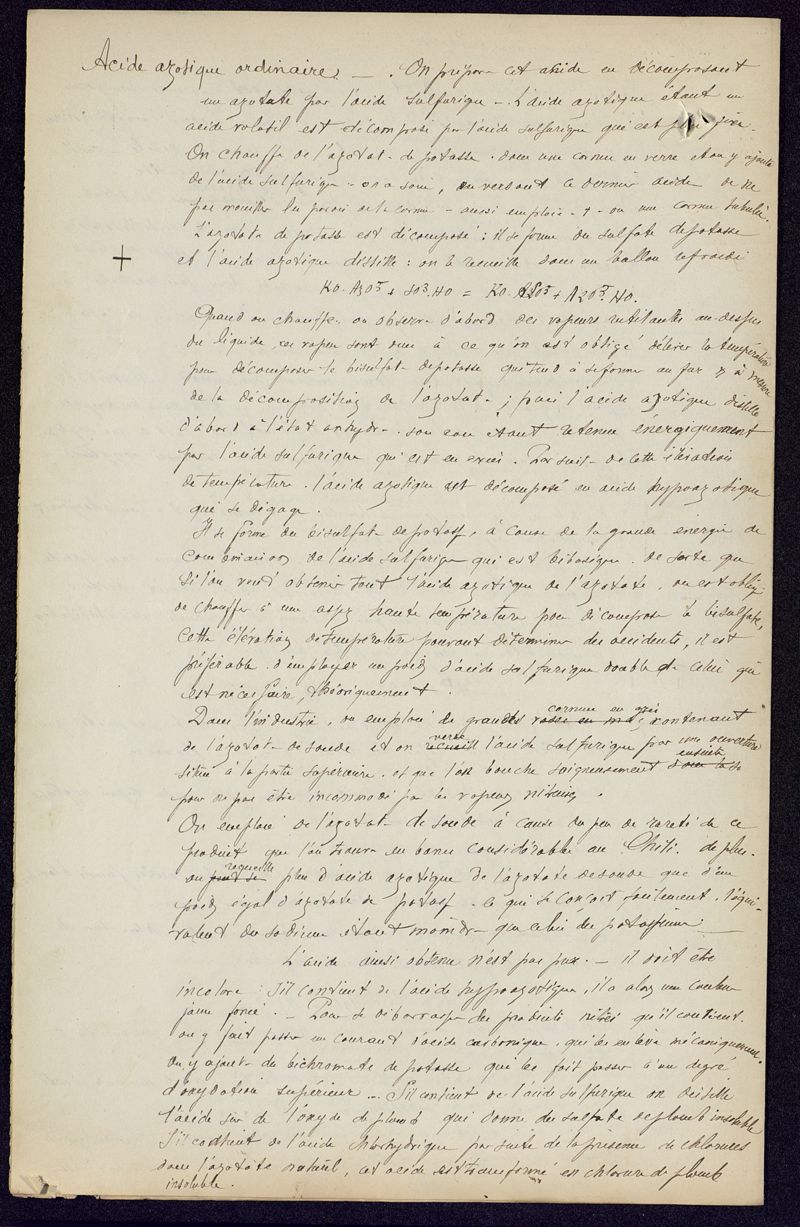 Acide azotique ordinaire. — On prépare cet acide en décomposant
un azotate par l'acide sulfurique — L'acide azotique étant un
acide volatil est décomposé par l'acide sulfurique qui est plus fixe.
On chauffe de l'azotate de potasse dans une cornue en verre et on y ajoute
de l'acide sulfurique — on a soin, en versant ce dernier acide de ne
pas mouiller les parois de la cornue — aussi emploie-t-on une cornue tubulée.
L'azotate de potasse est décomposé : il se forme du sulfate de potasse
+ et l'acide azotique distille : on le recueille dans un ballon refroidi
KO. AzO5 + SO3. HO = KO. + AzO5. HO.
Quand on chauffe on observe d'abord des vapeurs rutilantes au-dessus
du liquide, ces vapeurs sont dues à ce qu'on est obligé d'élever la température
pour décomposer le bisulfate de potasse qui tend à se former au fur & à mesure
de la décomposition de l'azotate ; puis l'acide azotique distille
d'abord à l'état anhydre son eau étant retenue énergiquement
par l'acide sulfurique qui est en excès. Par suite de cette élévation
de température l'acide azotique est décomposé en acide hypoazotique
qui se dégage.
Il se forme du bisulfate de potasse, à cause de la grande énergie de
combinaison de l'acide sulfurique qui est bibasique. De sorte que
si l'on veut obtenir tout l'acide azotique de l'azotate, on est obligé
de chauffer à une assez haute température pour décomposer le bisulfate,
cette élévation de température pouvant déterminer des accidents, il est
préférable d'employer un poids d'acide sulfurique double de celui qui
est nécessaire, théoriquement.
Dans l'industrie, on emploie de grandes cornues en grès contenant
de l'azotate de soude et on verse l'acide sulfurique par une ouverture
située à la partie supérieure, et que l'on bouche soigneusement ensuite
pour ne pas être incommodé par les vapeurs nitreuses.
On emploie de l'azotate de soude à cause du peu de rareté de ce
produit que l'on trouve en bancs considérables au Chili. de plus
on recueille plus d'acide azotique de l'azotate de soude que d'un
poids égal d'azotate de potasse ce qui se conçoit facilement, l'équi-
valent du sodium étant moindre que celui du potassium.
L'acide ainsi obtenu n'est pas pur. — il doit être
incolore : s'il contient de l'acide hypoazotique, il a alors une couleur
jaune foncé. — Pour se débarrasser des produits nitrés qu'il contient
on y fait passer un courant d'acide carbonique, qui les enlève mécaniquement.
On y ajoute du bichromate de potasse qui les fait passer à un degré
d'oxydation supérieur — S'il contient de l'acide sulfurique on distille
l'acide sur de l'oxyde de plomb qui donne du sulfate de plomb insoluble
S'il contient de l'acide chlorhydrique par suite de la présence de chlorures
dans l'azotate naturel, cet acide est transformé en chlorure de plomb
insoluble.